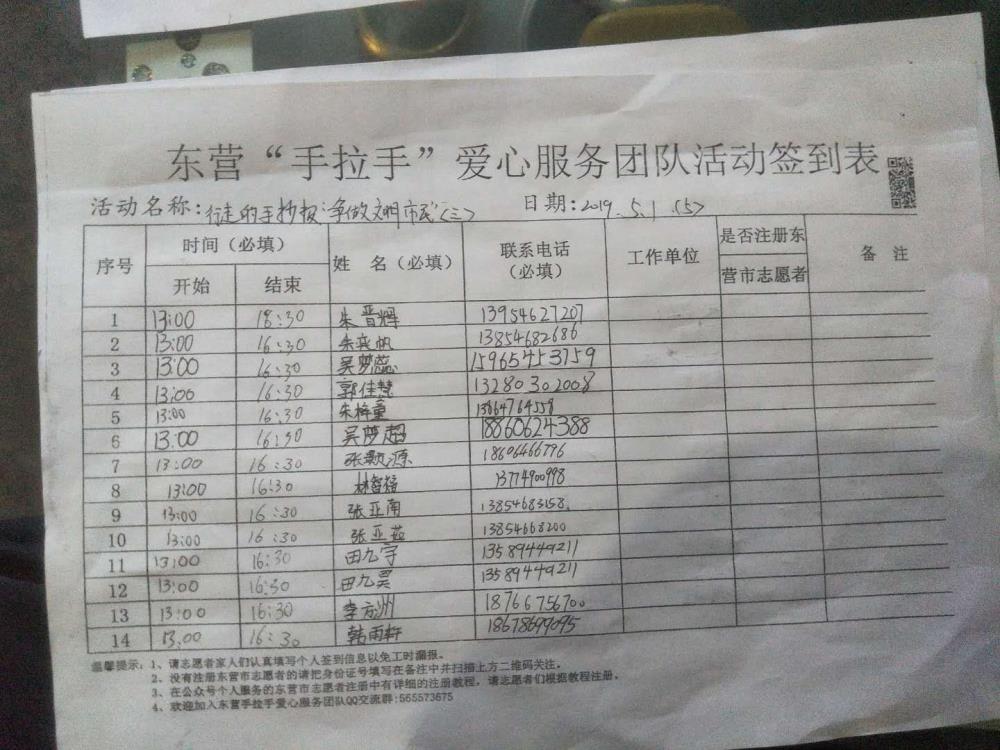 东营“手拉手”爱心服务团队活动签到表
活动名称:行走的手抄报:争做文明市民(三) 日期:2019.5.1 (5)
序号 时间(必填) 姓 名(必填) 联系电话(必填) 工作单位 是否注册东营市志愿者 备 注
开始 结束
1 13:00 18:30 朱晋辉 13954627207
2 13:00 16:30 朱奕帆 13854682686
3 13:00 16:30 吴梦蕊 15965453759
4 13:00 16:30 郭佳慧 13280302008
5 13:00 16:30 朱梓童 13864764558
6 13:00 16:30 吴梦超 18860624388
7 13:00 16:30 张颢源 18606466776
8 13:00 16:30 林智禧 13774900998
9 13:00 16:30 张亚南 13854683158
10 13:00 16:30 张亚茹 13854668200
11 13:00 16:30 田九宇 13589449211
12 13:00 16:30 田九昊 13589449211
13 13:00 16:30 李方洲 18766756700
14 13:00 16:30 韩雨轩 18678699095
温馨提示:1、请志愿者家人们认真填写个人签到信息以免工时漏报。
2、没有注册东营市志愿者的请把身份证号填写在备注中并扫描上方二维码关注。
3、在公众号个人服务的东营市志愿者注册中有详细的注册教程,请志愿者们根据教程注册。
4、欢迎加入东营手拉手爱心服务团队QQ交流群:565573675